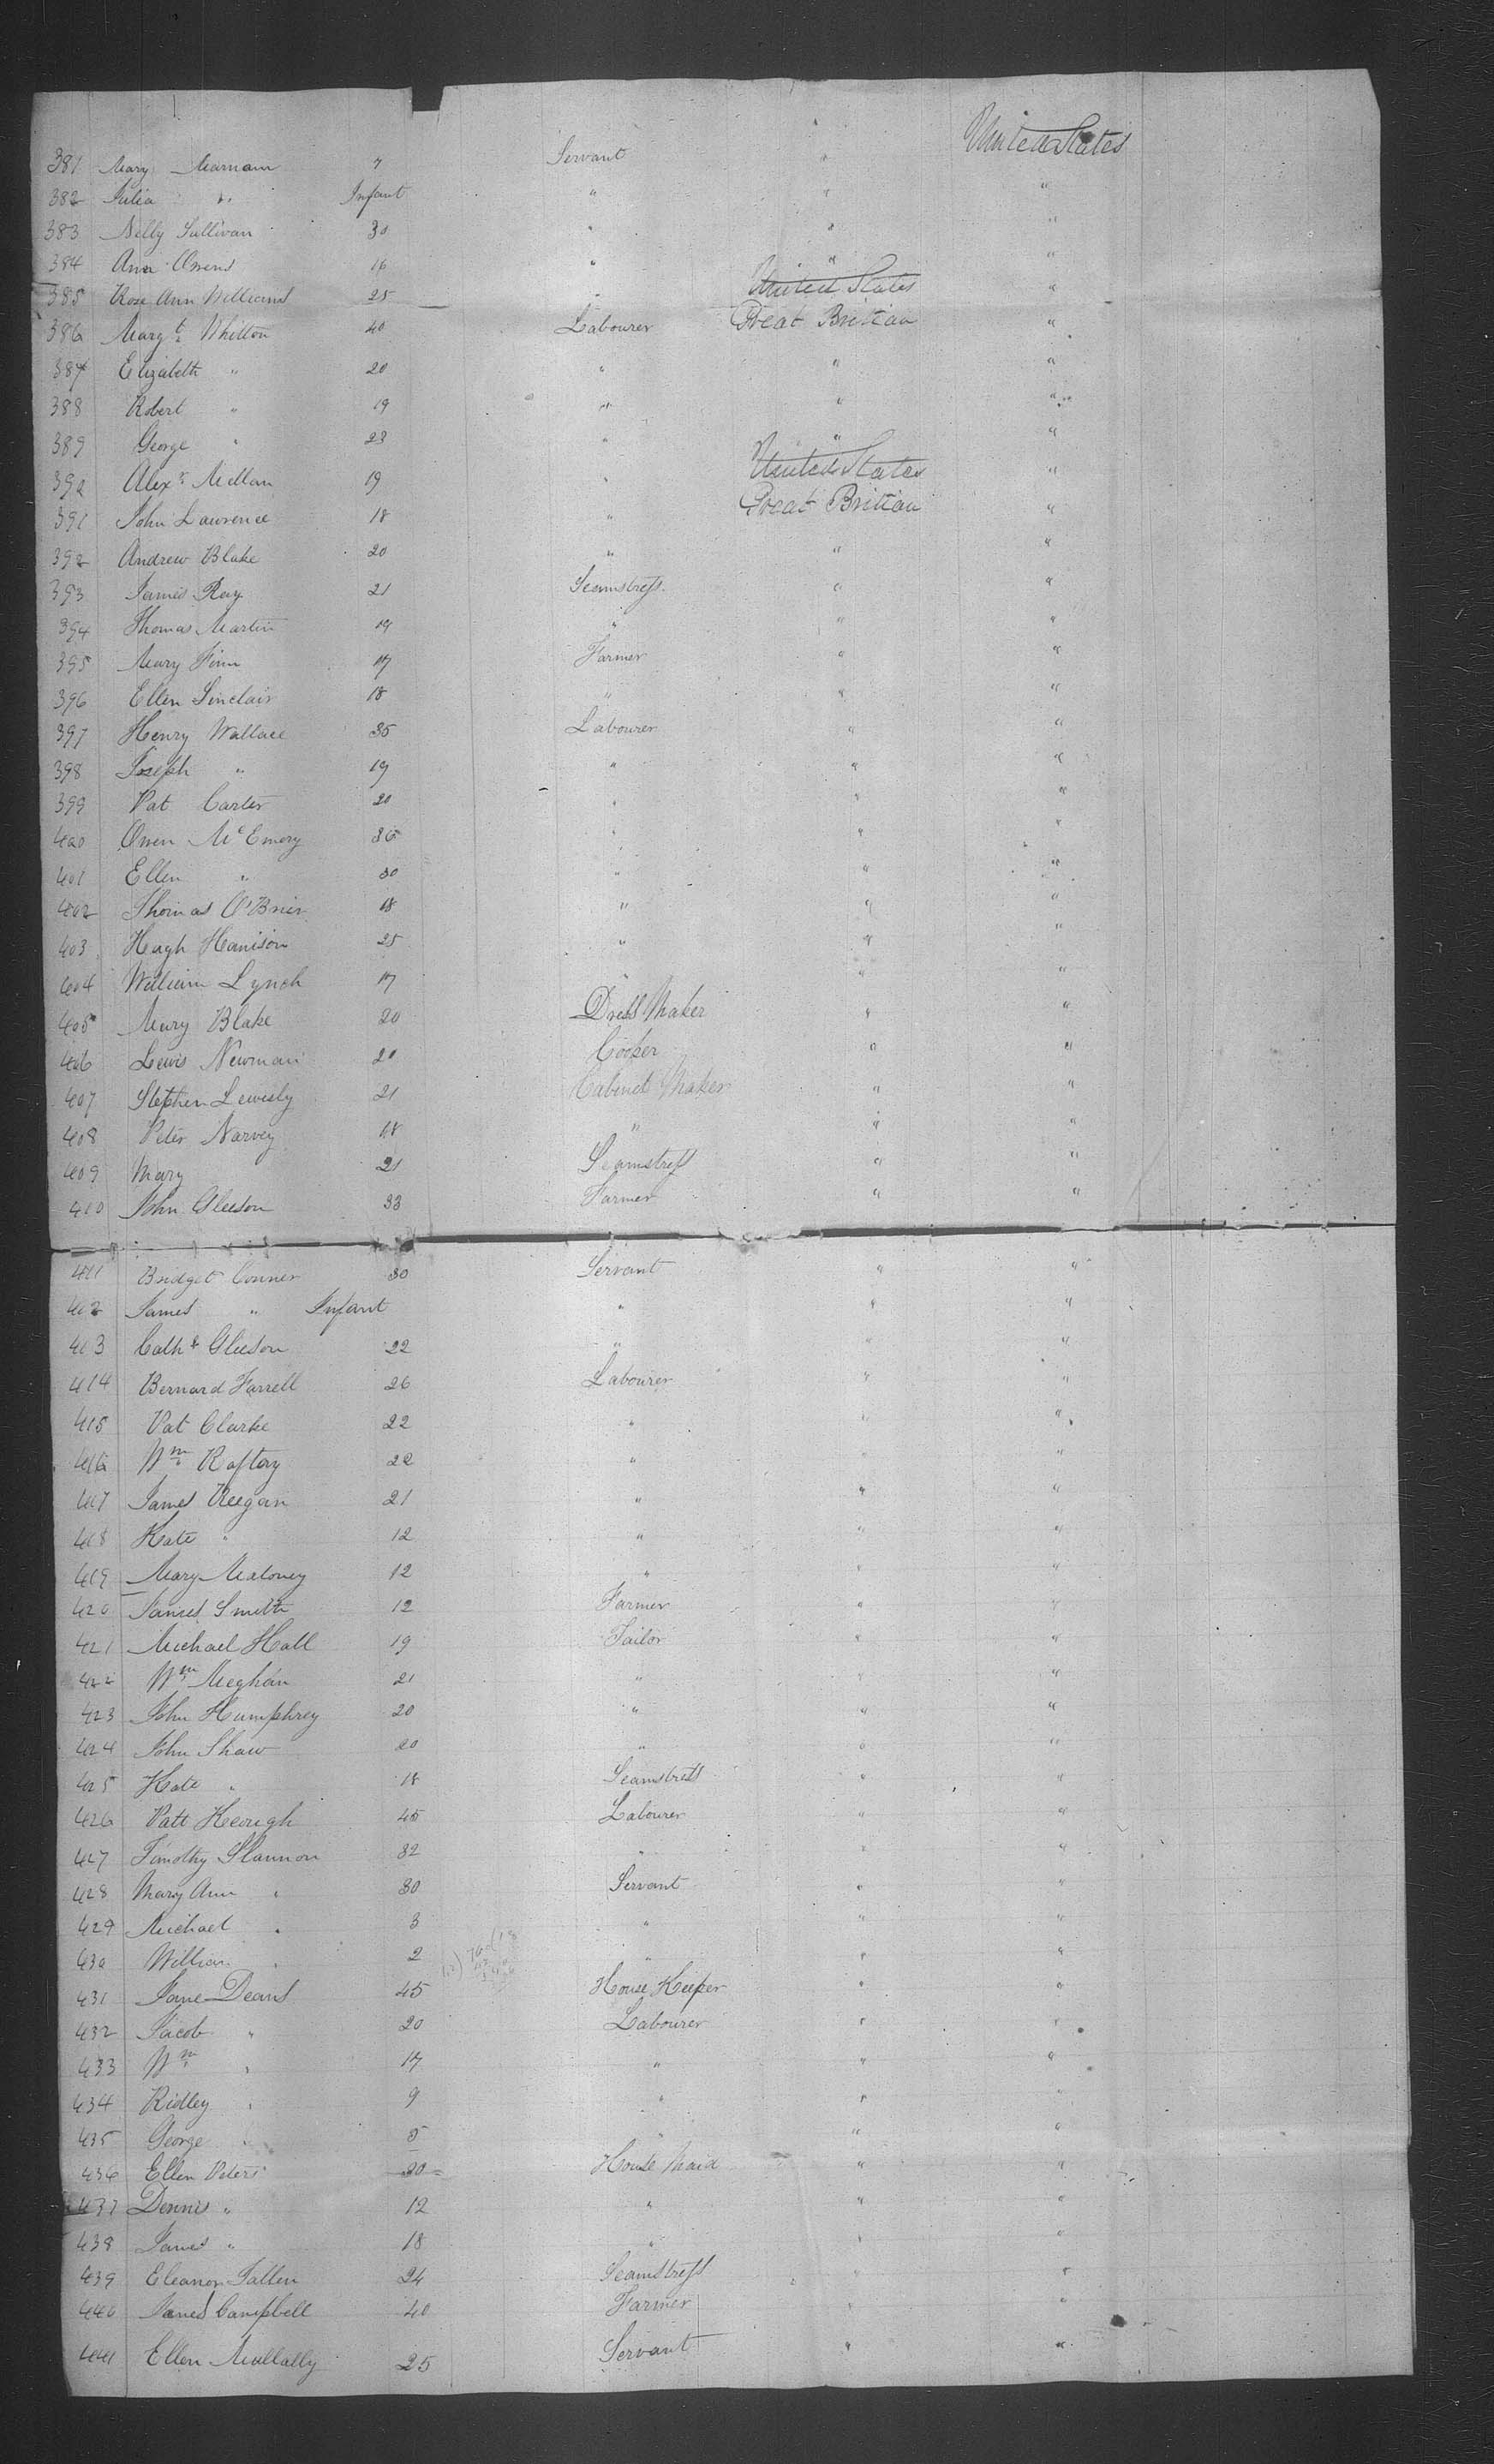 United States
381 Mary Marnam 7 Servant "
382 Julia " Infant " " "
383 Nelly Sullivan 30 " " "
384 Ann Owens 16 " " "
385 Rose Ann Williams 25 " United States "
386 Margt Whitton 40 Labourer Great Brittian "
387 Elizabeth " 20 " " "
388 Robert " 19 " " "
389 George " 23 " " "
392 Alexr Mellan 19 " United States "
391 John Lawrence 18 " Great Brittian "
392 Andrew Blake 20 " " "
393 James Ray 21 Seamstress " "
394 Thomas Martin 19 " " "
395 Mary Finn 17 Farmer " "
396 Ellen Sinclair 18 " " "
397 Henry Wallace 35 Labourer " "
398 Joseph " 19 " " "
399 Pat Carter 20 " " "
400 Owen McEmery 36 " " "
401 Ellen " 30 " " "
402 Thomas O'Brien 18 " " "
403 Hugh Hanison 25 " " "
404 William Lynch 17 " " "
405 Mary Blake 20 Dress Maker " "
406 Lewis Newman 20 Cooper " "
407 Stephen Lewisly 21 Cabinet Maker " "
408 Peter Narvey 18 " " "
409 Mary 21 Seamstress " "
410 John Gleeson 33 Farmer " "
411 Bridget Conner 30 Servant " "
412 James " Infant " " "
413 Cathe Gleeson 22 " " "
414 Bernard Farrell 26 Labourer " "
415 Pat Clarke 22 " " "
416 Wm Raftery 22 " " "
417 James Keegan 21 " " "
418 Kate " 12 " " "
419 Mary Maloney 12 " " "
420 James Smith 12 Farmer " "
421 Michael Hall 19 Tailor " "
422 Wm Meghan 21 " " "
423 John Humphrey 20 " " "
424 John Shaw 20 " " "
425 Kate " 18 Seamstress " "
426 Patt Keough 45 Labourer " "
427 Timothy Shannon 32 " " "
428 Mary Ann " 30 Servant " "
429 Michael " 3 " " "
430 William " 2 " " "
431 Jane Deans 45 House Keeper " "
432 Jacob " 20 Labourer " "
433 Wm " 17 " " "
434 Ridley " 9 " " "
435 George " 5 " " "
436 Ellen Peters 30 House Maid " "
437 Dennis " 12 " " "
438 James " 18 " " "
439 Eleanor Fallen 24 Seamstress " "
440 James Campbell 40 Farmer " "
441 Ellen Mullally 25 Servant " "